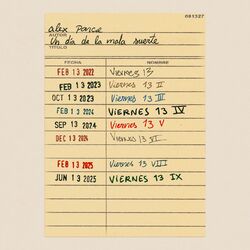 081327
alex Ponce
AUTOR
Un día de la mala suerte
TÍTULO
FECHA NOMBRE
FEB 13 2022 Viernes 13
FEB 13 2023 Viernes 13 II
OCT 13 2023 Viernes 13 III
FEB 13 2024 VIERNES 13 IV
SEP 13 2024 Viernes 13 V
DEC 13 2024 Viernes 13 VI
FEB 13 2025 Viernes 13 VIII
JUN 13 2025 VIERNES 13 IX